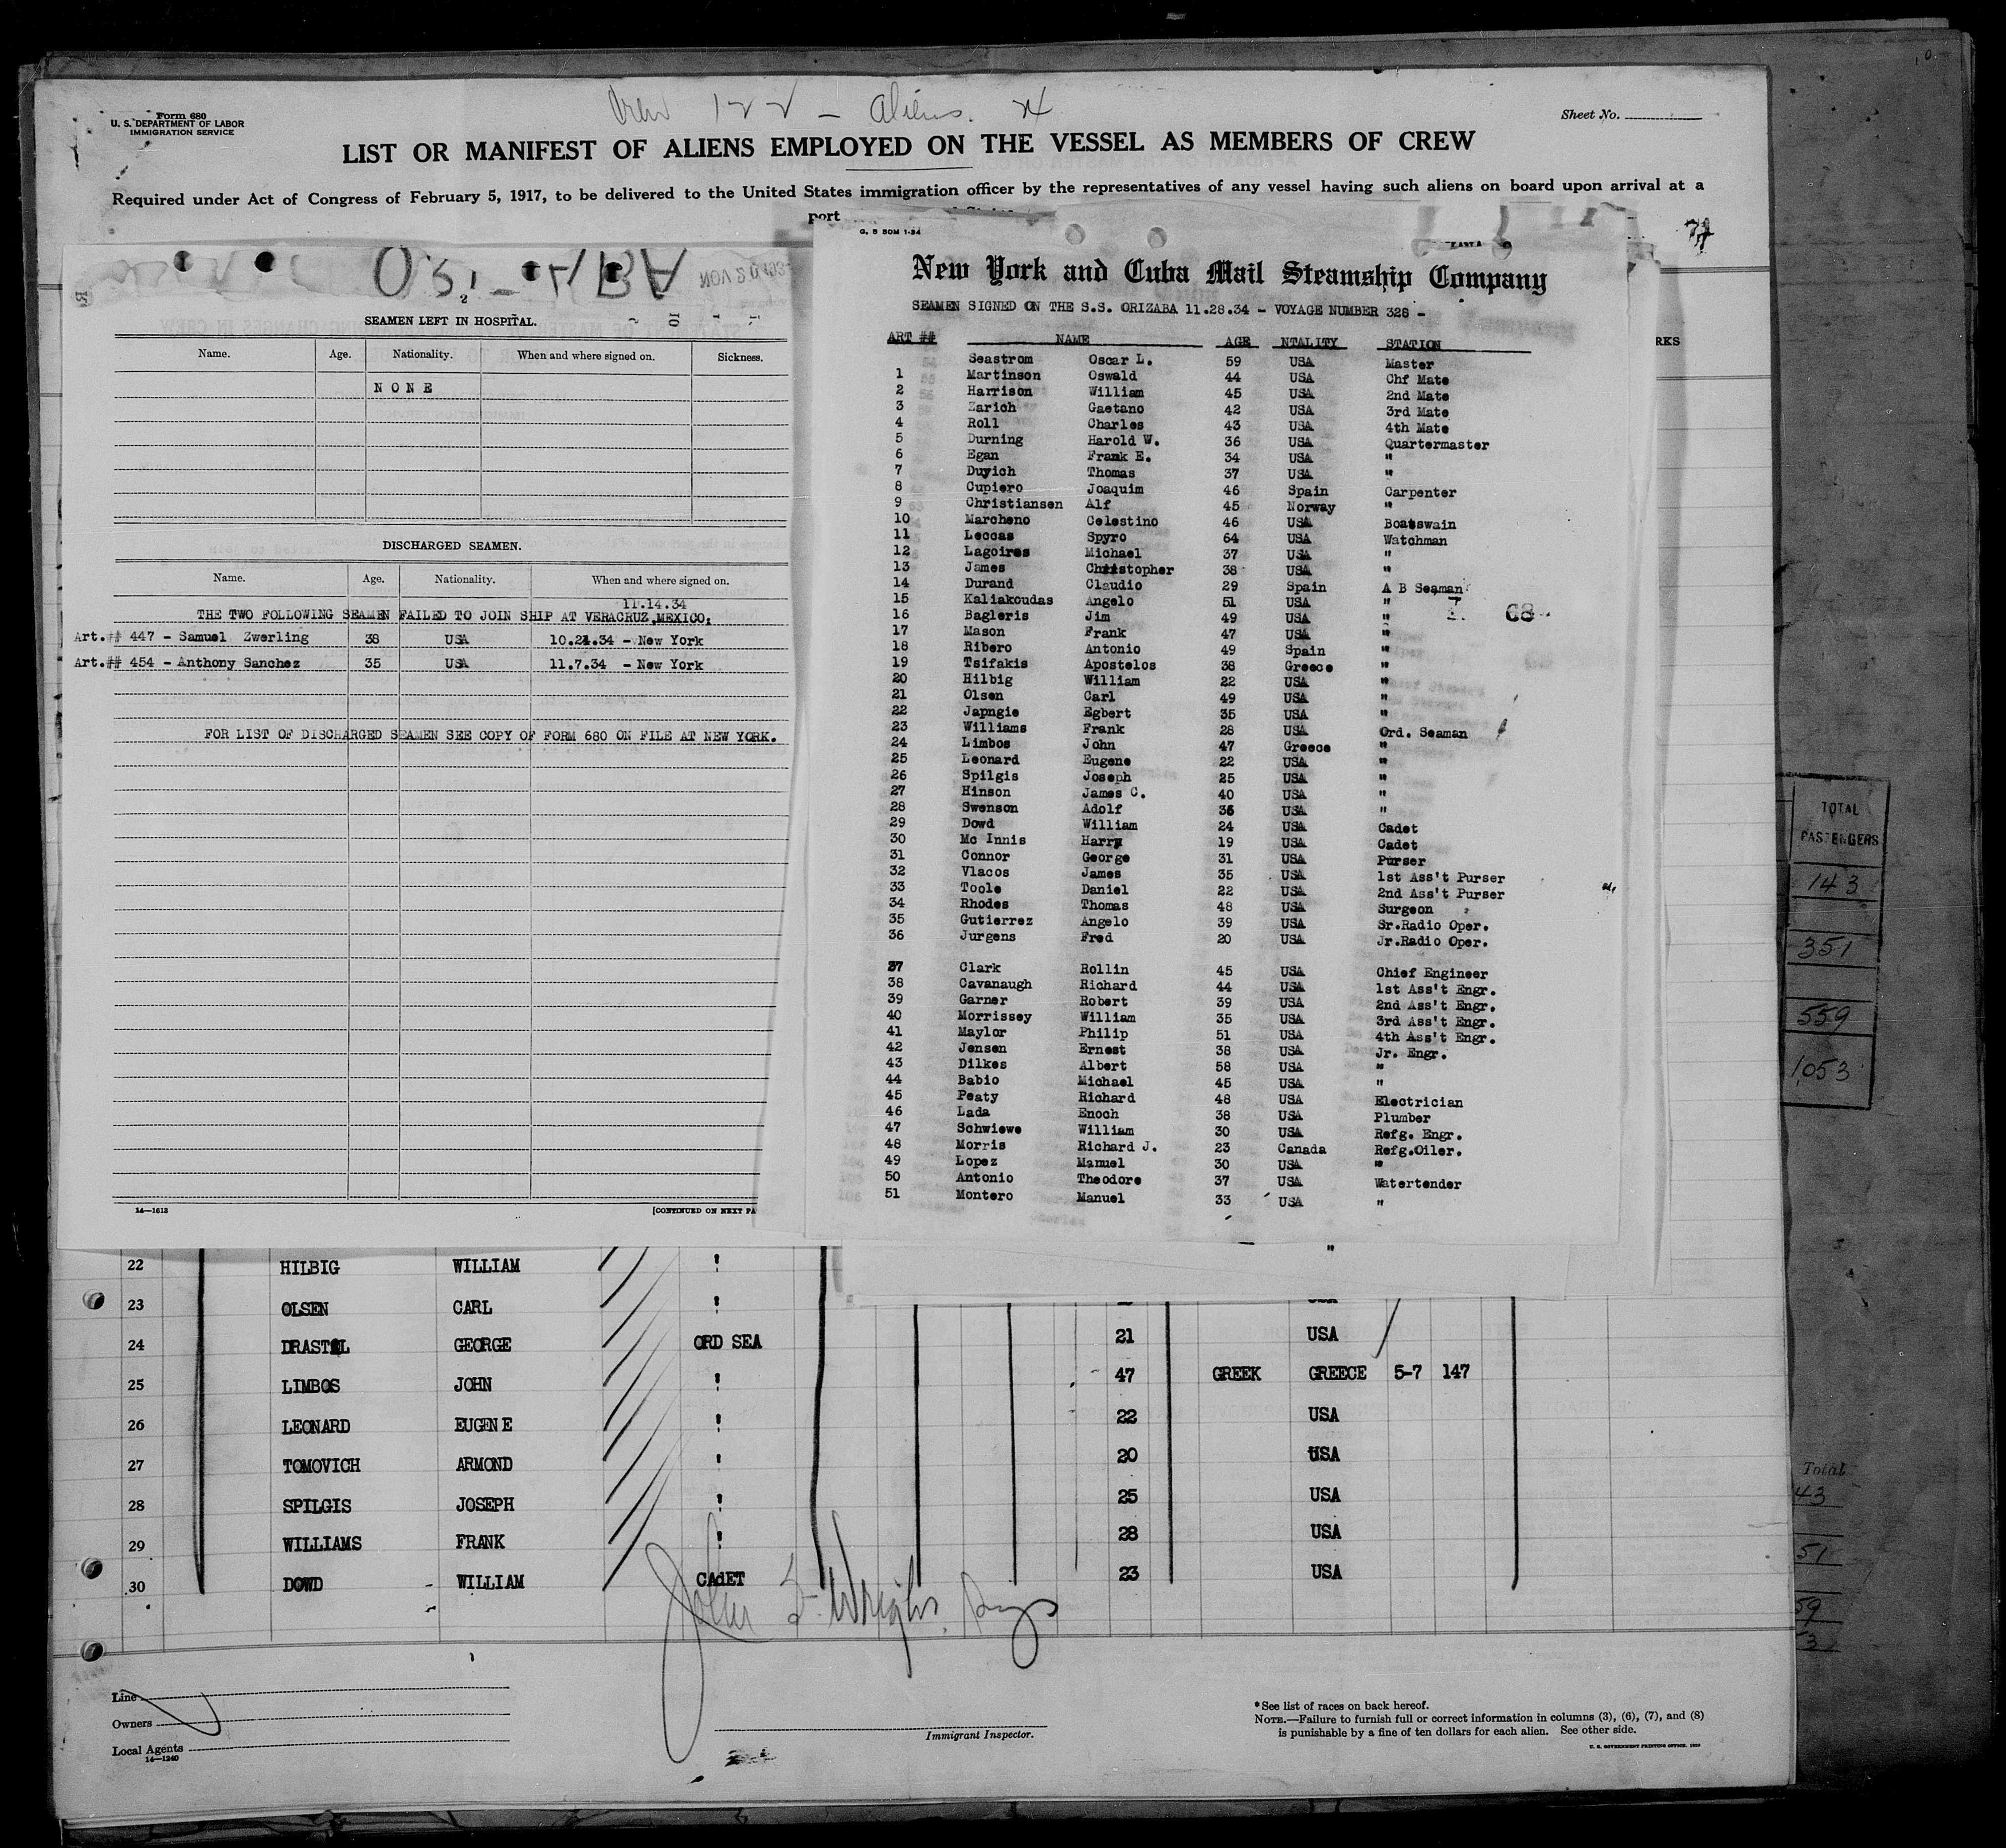 Crew 122 - Aliens. 24
Form 680
U. S. DEPARTMENT OF LABOR
IMMIGRATION SERVICE
Sheet No.
LIST OR MANIFEST OF ALIENS EMPLOYED ON THE VESSEL AS MEMBERS OF CREW
Required under Act of Congress of February 5, 1917, to be delivered to the United States immigration officer by the representatives of any vessel having such aliens on board upon arrival at a
port
NOV 20 193
2
SEAMEN LEFT IN HOSPITAL.
Name. Age. Nationality. When and where signed on. Sickness.
NONE
DISCHARGED SEAMEN.
Name. Age. Nationality. When and where signed on.
11.14.34
THE TWO FOLLOWING SEAMEN FAILED TO JOIN SHIP AT VERACRUZ,MEXICO:
Art.## 447 - Samuel Zwerling 38 USA 10.24.34 - New York
Art.## 454 - Anthony Sanchez 35 USA 11.7.34 - New York
FOR LIST OF DISCHARGED SEAMEN SEE COPY OF FORM 680 ON FILE AT NEW YORK.
14—1613
[CONTINUED ON NEXT PA
G. S 50M 1-34
New York and Cuba Mail Steamship Company
SEAMEN SIGNED ON THE S.S. ORIZABA 11.28.34 - VOYAGE NUMBER 328 -
RKS
ART ## NAME AGE NTALITY STATION
Seastrom Oscar L. 59 USA Master
1 Martinson Oswald 44 USA Chf Mate
2 Harrison William 45 USA 2nd Mate
3 Zarich Gaetano 42 USA 3rd Mate
4 Roll Charles 43 USA 4th Mate
5 Durning Harold W. 36 USA Quartermaster
6 Egan Frank E. 34 USA "
7 Duyich Thomas 37 USA "
8 Cupiero Joaquim 46 Spain Carpenter
9 Christiansen Alf 45 Norway "
10 Marcheno Celestino 46 USA Boatswain
11 Leccas Spyro 64 USA Watchman
12 Lagoires Michael 37 USA "
13 James Christopher 38 USA "
14 Durand Claudio 29 Spain A B Seaman
15 Kaliakoudas Angelo 51 USA "
16 Bagleris Jim 49 USA "
68
17 Mason Frank 47 USA "
18 Ribero Antonio 49 Spain "
19 Tsifakis Apostelos 38 Greece "
20 Hilbig William 22 USA "
21 Olsen Carl 49 USA "
22 Japngie Egbert 35 USA "
23 Williams Frank 28 USA Ord. Seaman
24 Limbos John 47 Greece "
25 Leonard Eugene 22 USA "
26 Spilgis Joseph 25 USA "
27 Hinson James C. 40 USA "
28 Swenson Adolf 36 USA "
29 Dowd William 24 USA Cadet
30 Mc Innis Harry 19 USA Cadet
31 Connor George 31 USA Purser
32 Vlacos James 35 USA 1st Ass't Purser
33 Toole Daniel 22 USA 2nd Ass't Purser
34 Rhodes Thomas 48 USA Surgeon
35 Gutierrez Angelo 39 USA Sr.Radio Oper.
36 Jurgens Fred 20 USA Jr.Radio Oper.
37 Clark Rollin 45 USA Chief Engineer
38 Cavanaugh Richard 44 USA 1st Ass't Engr.
39 Garner Robert 39 USA 2nd Ass't Engr.
40 Morrissey William 35 USA 3rd Ass't Engr.
41 Maylor Philip 51 USA 4th Ass't Engr.
42 Jensen Ernest 38 USA Jr. Engr.
43 Dilkes Albert 58 USA "
44 Babio Michael 45 USA "
45 Peaty Richard 48 USA Electrician
46 Lada Enoch 38 USA Plumber
47 Schwiewe William 30 USA Refg. Engr.
48 Morris Richard J. 23 Canada Refg.Oiler.
49 Lopez Manuel 30 USA "
50 Antonio Theodore 37 USA Watertender
51 Montero Manuel 33 USA "
TOTAL
PASSENGERS
143
351
559
1053
22 HILBIG WILLIAM "
23 OLSEN CARL "
24 DRASTEL GEORGE ORD SEA 21 USA
25 LIMBOS JOHN " 47 GREEK GREECE 5-7 147
26 LEONARD EUGENE " 22 USA
27 TOMOVICH ARMOND " 20 USA
28 SPILGIS JOSEPH " 25 USA
29 WILLIAMS FRANK " 28 USA
30 DOWD WILLIAM CAdET 23 USA
Total
43
51
59
John F. Wright
Line
Owners
Local Agents
14—1240
Immigrant Inspector.
*See list of races on back hereof.
NOTE.—Failure to furnish full or correct information in columns (3), (6), (7), and (8)
is punishable by a fine of ten dollars for each alien. See other side.
U. S. GOVERNMENT PRINTING OFFICE